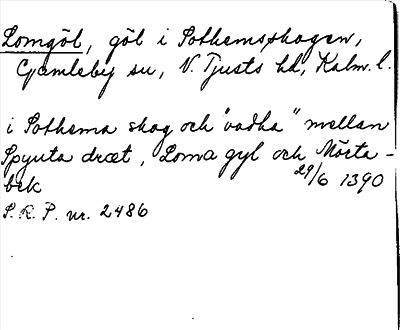 Lomgöl, göl i Sothemsskogen,
Gamleby sn, N. Tjusts hd, Kalm. l.
i Sothema skog och "vadha" mellan
Spynta dræt, Loma gyl och Mörta-
bek 29/6 1390
S.R.P. nr. 2486